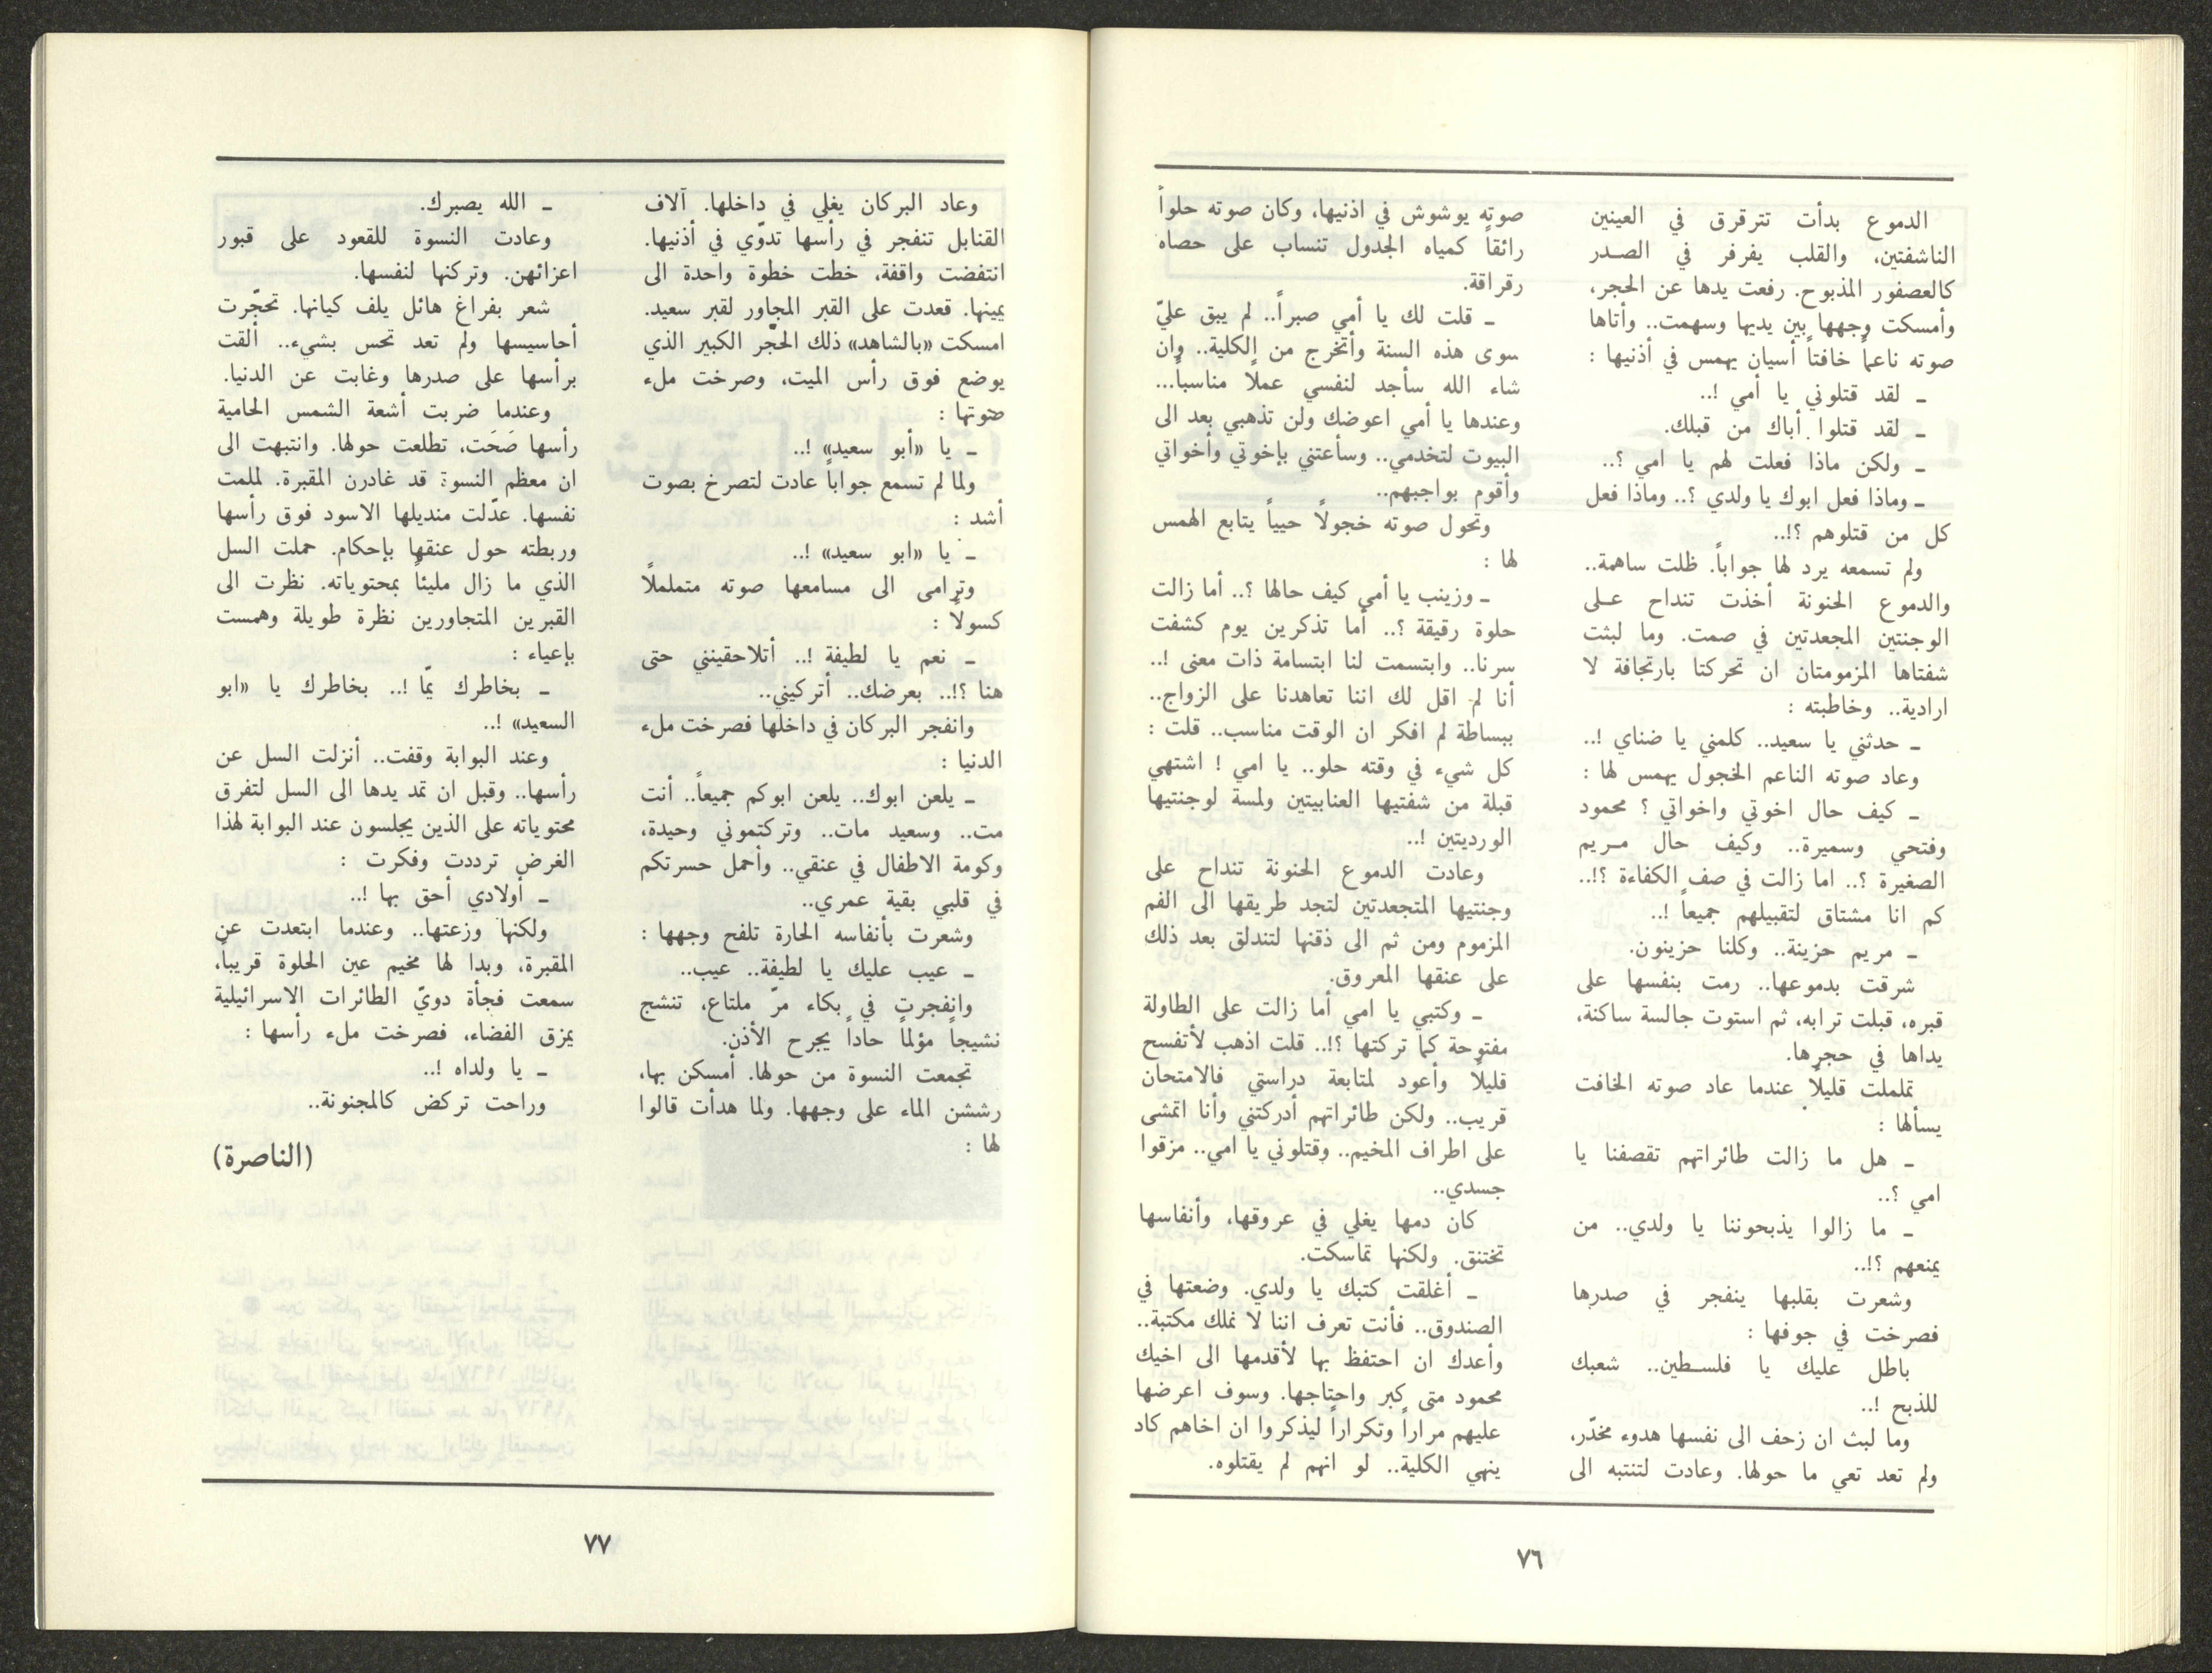 الدموع بدأت تترقرق في العينين
الناشفتين، والقلب يفرفر في الصدر
كالعصفور المذبوح. رفعت يدها عن الحجر،
وأمسكت وجهها بين يديها وسهمت.. وأتاها
صوته ناعماً خافتاً أسيان يهمس في أذنيها :
ـ لقد قتلوني يا أمي !..
ـ لقد قتلوا أباك من قبلك.
ـ ولكن ماذا فعلت لهم يا امي ؟..
ـ وماذا فعل ابوك يا ولدي ؟.. وماذا فعل
كل من قتلوهم ؟!..
ولم تسمعه يرد لها جواباً. ظلت ساهمة..
والدموع الحنونة أخذت تنداح على
الوجنتين المجعدتين في صمت. وما لبثت
شفتاها المزمومتان ان تحركتا بارتجافة لا
ارادية.. وخاطبته :
ـ حدثني يا سعيد.. كلمني يا ضناي !..
وعاد صوته الناعم الخجول يهمس لها :
ـ كيف حال اخوتي واخواتي ؟ محمود
وفتحي وسميرة.. وكيف حال مريم
الصغيرة ؟.. اما زالت في صف الكفاءة ؟!..
كم انا مشتاق لتقبيلهم جميعاً !..
ـ مريم حزينة.. وكلنا حزينون.
شرقت بدموعها.. رمت بنفسها على
قبره، قبلت ترابه، ثم استوت جالسة ساكنة،
يداها في حجرها.
تململت قليلاً عندما عاد صوته الخافت
يسألها :
ـ هل ما زالت طائراتهم تقصفنا يا
امي ؟..
ـ ما زالوا يذبحوننا يا ولدي.. من
يمنعهم ؟!..
وشعرت بقلبها ينفجر في صدرها
فصرخت في جوفها :
باطل عليك يا فلسطين.. شعبك
للذبح !..
وما لبث ان زحف الى نفسها هدوء مخدّر،
ولم تعد تعي ما حولها. وعادت لتنتبه الى
صوته يوشوش في اذنيها، وكان صوته حلواً
رائقاً كمياه الجدول تنساب على حصاه
رقراقة.
ـ قلت لك يا أمي صبراً.. لم يبق عليّ
سوى هذه السنة وأتخرج من الكلية.. وان
شاء الله سأجد لنفسي عملاً مناسباً...
وعندها يا أمي اعوضك ولن تذهبي بعد الى
البيوت لتخدمي.. وسأعتني بإخوتي وأخواتي
وأقوم بواجبهم..
وتحول صوته خجولاً حيياً يتابع الهمس
لها :
ـ وزينب يا أمي كيف حالها ؟.. أما زالت
حلوة رقيقة ؟.. أما تذكرين يوم كشفت
سرنا.. وابتسمت لنا ابتسامة ذات معنى !..
أنا لم اقل لك اننا تعاهدنا على الزواج..
ببساطة لم افكر ان الوقت مناسب.. قلت :
كل شيء في وقته حلو.. يا امي ! اشتهي
قبلة من شفتيها العنابيتين ولمسة لوجنتيها
الورديتين !..
وعادت الدموع الحنونة تنداح على
وجنتيها المتجعدتين لتجد طريقها الى الفم
المزموم ومن ثم الى ذقنها لتندلق بعد ذلك
على عنقها المعروق.
ـ وكتبي يا امي أما زالت على الطاولة
مفتوحة كما تركتها ؟!.. قلت اذهب لأتفسح
قليلاً وأعود لمتابعة دراستي فالامتحان
قريب.. ولكن طائراتهم أدركتني وأنا اتمشى
على اطراف المخيم.. وقتلوني يا امي.. مزقوا
جسدي..
كان دمها يغلي في عروقها، وأنفاسها
تختنق. ولكنها تماسكت.
ـ أغلقت كتبك يا ولدي. وضعتها في
الصندوق.. فأنت تعرف اننا لا نملك مكتبة..
وأعدك ان احتفظ بها لأقدمها الى اخيك
محمود متى كبر واحتاجها. وسوف اعرضها
عليهم مراراً وتكراراً ليذكروا ان اخاهم كاد
ينهي الكلية.. لو انهم لم يقتلوه.
٧٦
وعاد البركان يغلي في داخلها. آلاف
القنابل تنفجر في رأسها تدوّي في أذنيها.
انتفضت واقفة، خطت خطوة واحدة الى
يمينها. قعدت على القبر المجاور لقبر سعيد.
امسكت «بالشاهد» ذلك الحجّر الكبير الذي
يوضع فوق رأس الميت، وصرخت ملء
صوتها :
ـ يا «أبو سعيد» !..
ولما لم تسمع جواباً عادت لتصرخ بصوت
أشد :
ـ يا «ابو سعيد» !..
وترامى الى مسامعها صوته متململاً
كسولاً :
ـ نعم يا لطيفة !.. أتلاحقينني حتى
هنا ؟!.. بعرضك.. أتركيني..
وانفجر البركان في داخلها فصرخت ملء
الدنيا :
ـ يلعن ابوك.. يلعن ابوكم جميعاً.. أنت
مت.. وسعيد مات.. وتركتموني وحيدة،
وكومة الاطفال في عنقي.. وأحمل حسرتكم
في قلبي بقية عمري..
وشعرت بأنفاسه الحارة تلفح وجهها :
ـ عيب عليك يا لطيفة.. عيب..
وانفجرت في بكاء مرّ ملتاع، تنشج
نشيجاً مؤلماً حاداً يجرح الأذن.
تجمعت النسوة من حولها. أمسكن بها،
رششن الماء على وجهها. ولما هدأت قالوا
لها :
ـ الله يصبرك.
وعادت النسوة للقعود على قبور
اعزائهن. وتركنها لنفسها.
شعر بفراغ هائل يلف كيانها. تحجّرت
أحاسيسها ولم تعد تحس بشيء.. ألقت
برأسها على صدرها وغابت عن الدنيا.
وعندما ضربت أشعة الشمس الحامية
رأسها صَحَت، تطلعت حولها. وانتبهت الى
ان معظم النسوة قد غادرن المقبرة. لملمت
نفسها. عدّلت منديلها الاسود فوق رأسها
وربطته حول عنقها بإحكام. حملت السل
الذي ما زال مليئاً بمحتوياته. نظرت الى
القبرين المتجاورين نظرة طويلة وهمست
بإعياء :
ـ بخاطرك يمّا !.. بخاطرك يا «ابو
السعيد» !..
وعند البوابة وقفت.. أنزلت السل عن
رأسها.. وقبل ان تمد يدها الى السل لتفرق
محتوياته على الذين يجلسون عند البوابة لهذا
الغرض ترددت وفكرت :
ـ أولادي أحق بها !..
ولكنها وزعتها.. وعندما ابتعدت عن
المقبرة، وبدا لها مخيم عين الحلوة قريباً،
سمعت فجأة دويّ الطائرات الاسرائيلية
يمزق الفضاء، فصرخت ملء رأسها :
ـ يا ولداه !..
وراحت تركض كالمجنونة..
(الناصرة)
٧٧